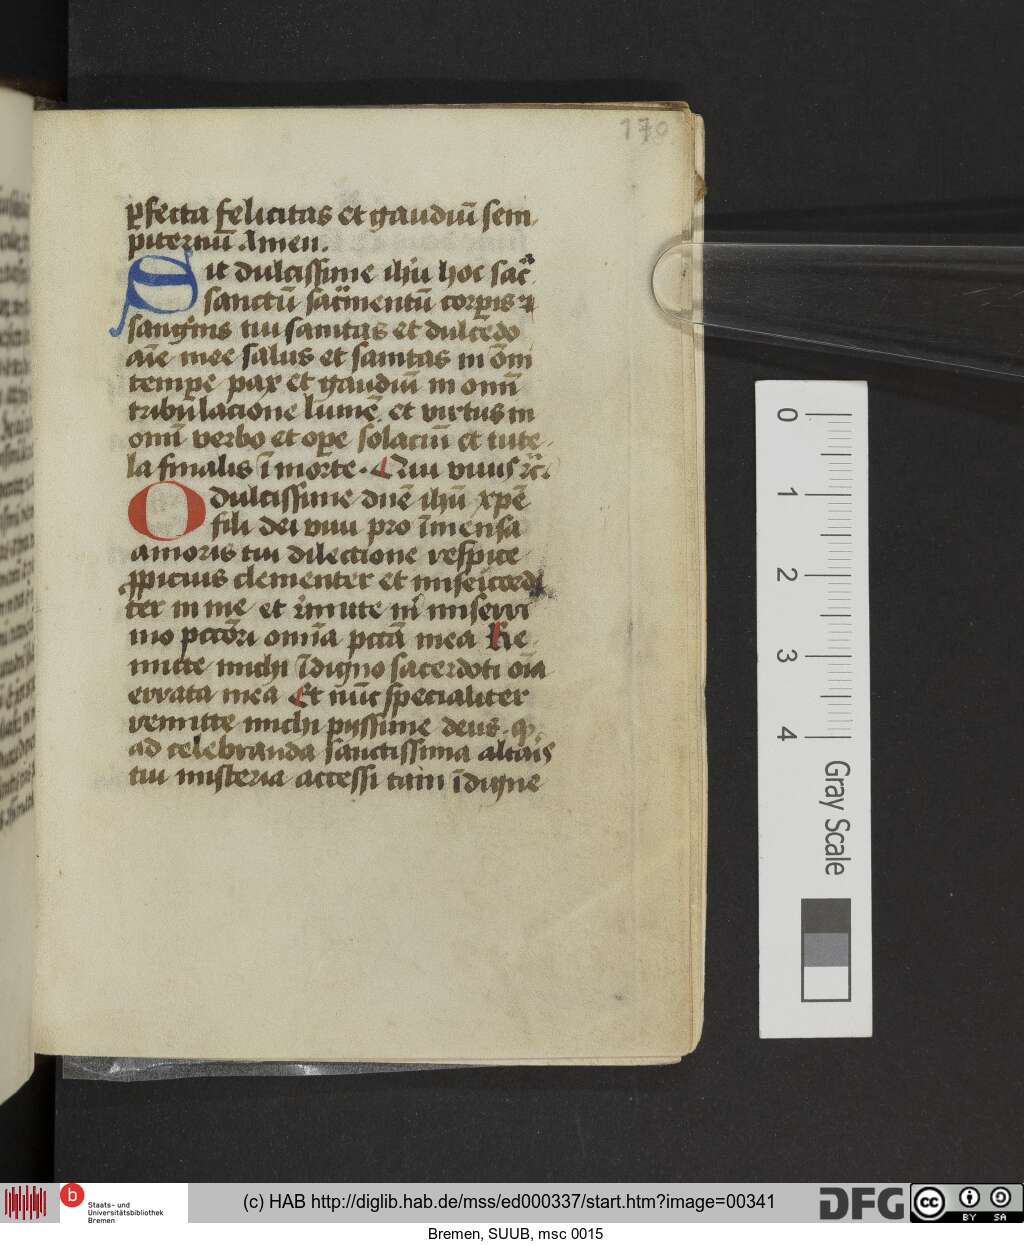 170
ꝑfecta felicitas et gaudiū sem
piternū Amen.
Sit dulcissime ihū hoc
sanctū sac̄mentū corꝑis ⁊
sangͥnis tui sanitas et dulcedo
aīe mee salus et sanitas in om̄i
tempe pax et gaudiū in omī
tribulacione lumē et virtus in
omī verbo et oꝑe solaciū et tute
la finalis ī morte. Qui viuis ⁊c̄.
O dulcissime dn̄e ihū xp̄e
fili dei viui pro īmensa
amoris tui dilectione respice
ꝓpicius clementer et misericordi
ter in me et dimitte m̄ miserri
mo pctōri omīa pctā mea Re
mitte michi īdigno sacerdoti oīa
errata mea Et nūc specialiter
remitte michi pyssime deus. ꝙ
ad celebranda sanctissima altaris
tui misteria accessi tam īdigne
0
1
2
3
4
Gray Scale
b
Staats- und
Universitätsbibliothek
Bremen
(c) HAB http://diglib.hab.de/mss/ed000337/start.htm?image=00341
DFG
cc
BY SA
Bremen, SUUB, msc 0015